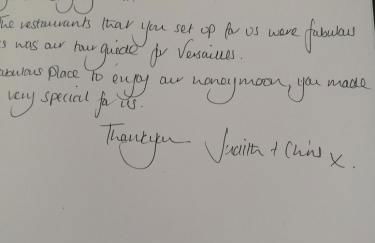 The restaurants that you set up for us were fabulous
s was our tour guide for Versailles.
abulous Place to enjoy our honeymoon, you made
very special for us.
Thankyou Judith + Chris x.